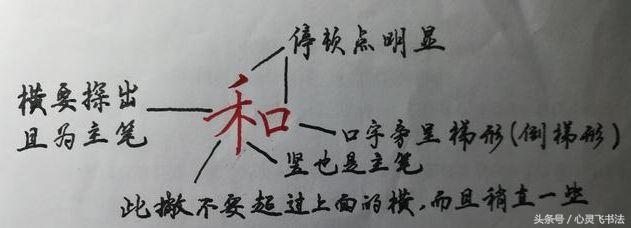 停顿点明显
横要探出
且为主笔
和
口字旁呈梯形(倒梯形)
竖也是主笔
此撇不要超过上面的横,而且稍直一些
头条号 / 心灵飞书法